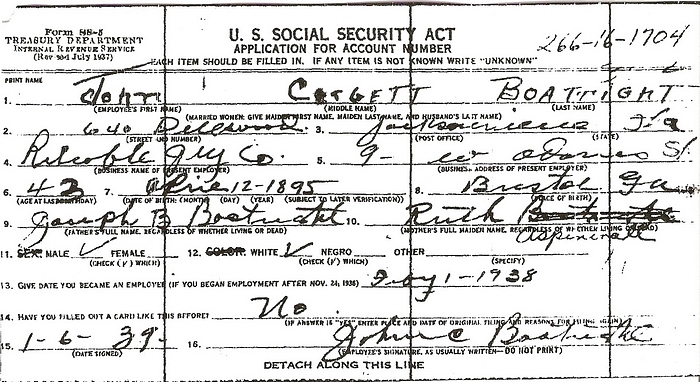 Form SS-5
TREASURY DEPARTMENT
INTERNAL REVENUE SERVICE
(Revised July 1937)
U. S. SOCIAL SECURITY ACT
APPLICATION FOR ACCOUNT NUMBER
266-16-1704
EACH ITEM SHOULD BE FILLED IN. IF ANY ITEM IS NOT KNOWN WRITE "UNKNOWN"
PRINT NAME
1. John BOATRIGHT
(EMPLOYEE'S FIRST NAME) (MIDDLE NAME) (LAST NAME)
(MARRIED WOMEN: GIVE MAIDEN FIRST NAME, MAIDEN LAST NAME, AND HUSBAND'S LAST NAME)
2. 640 Dellwood 3. Jacksonville Fla
(STREET AND NUMBER) (POST OFFICE) (STATE)
4. Reliable Co. 5. 9- W Adams St
(BUSINESS NAME OF PRESENT EMPLOYER) (BUSINESS ADDRESS OF PRESENT EMPLOYER)
6. 43 7. April 12-1895 8. Bristol Ga
(AGE AT LAST BIRTHDAY) (DATE OF BIRTH: (MONTH) (DAY) (YEAR) (SUBJECT TO LATER VERIFICATION) (PLACE OF BIRTH)
9. Joseph B Boatright 10. Ruth
(FATHER'S FULL NAME, REGARDLESS OF WHETHER LIVING OR DEAD) (MOTHER'S FULL MAIDEN NAME, REGARDLESS OF WHETHER LIVING OR DEAD)
Aspinwall
11. SEX: MALE ✓ FEMALE 12. COLOR: WHITE ✓ NEGRO OTHER
(CHECK (✓) WHICH) (CHECK (✓) WHICH) (SPECIFY)
13. GIVE DATE YOU BECAME AN EMPLOYEE (IF YOU BEGAN EMPLOYMENT AFTER NOV. 24, 1936) 1-1938
14. HAVE YOU FILLED OUT A CARD LIKE THIS BEFORE? No
(IF ANSWER IS "YES" ENTER PLACE AND DATE OF ORIGINAL FILING AND REASONS FOR FILING AGAIN)
15. 1-6-39. 16. John C Boatright
(DATE SIGNED) (EMPLOYEE'S SIGNATURE, AS USUALLY WRITTEN—DO NOT PRINT)
DETACH ALONG THIS LINE